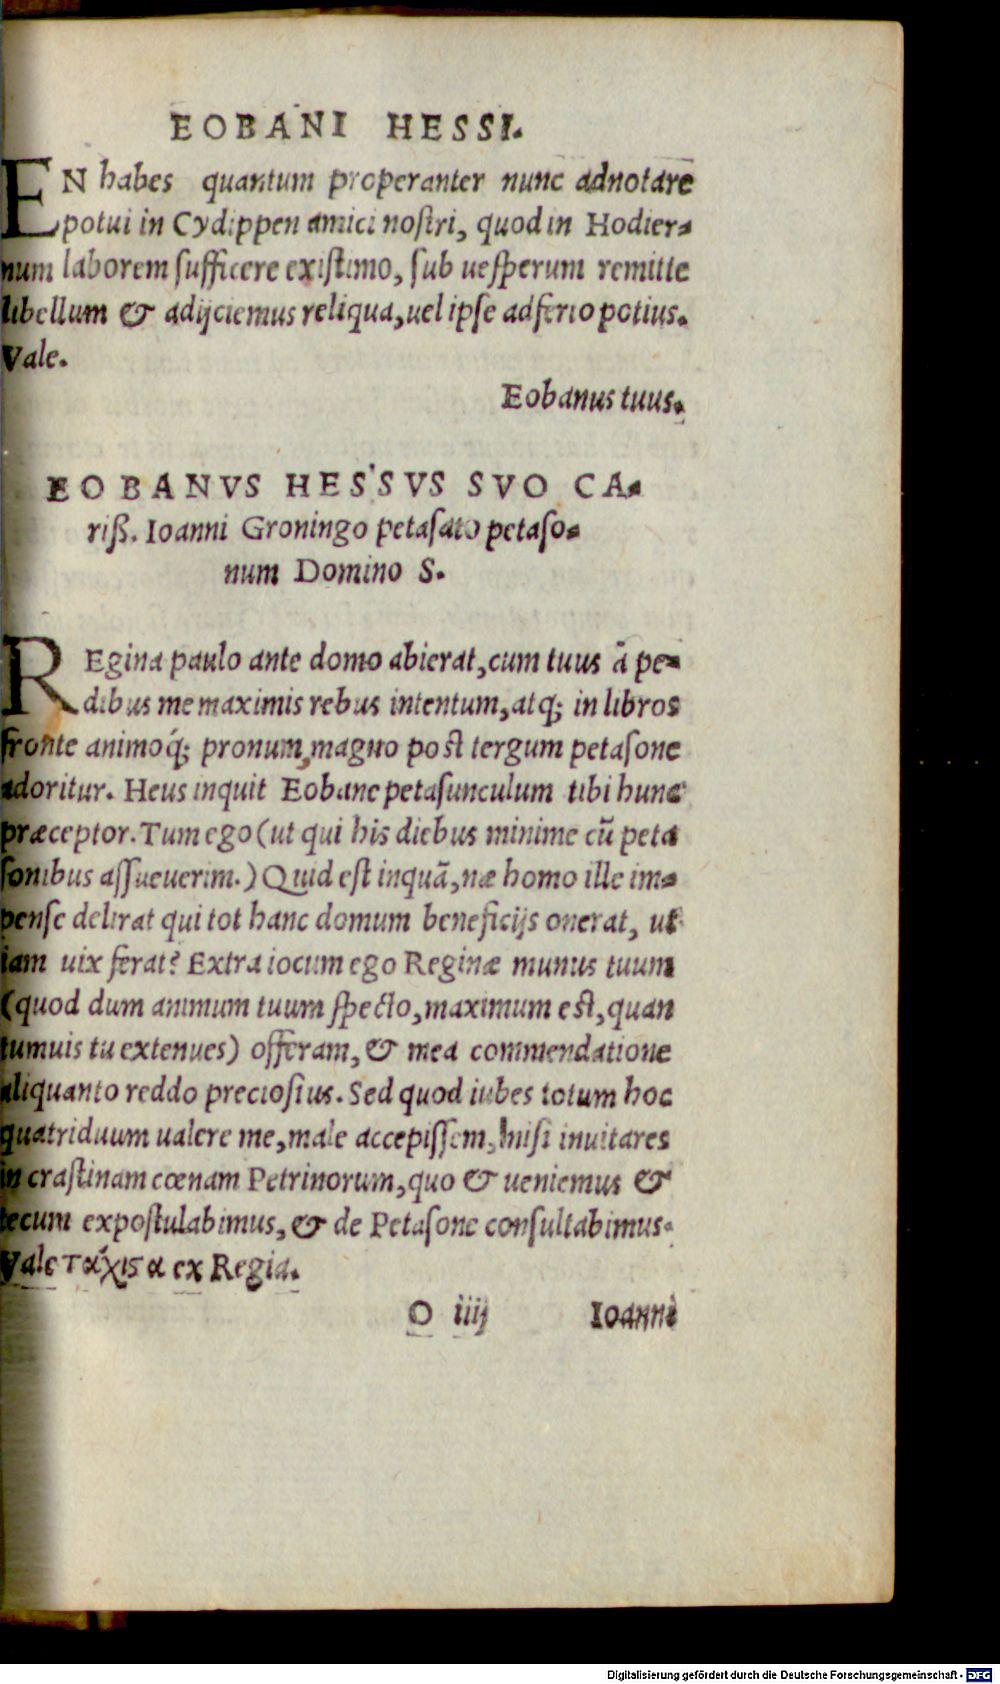 EOBANI HESSI.
EN habes quantum properanter nunc adnotare
potui in Cydippen amici nostri, quod in Hodier-
num laborem sufficere existimo, sub uesperum remitte
libellum & adijciemus reliqua, uel ipse adferto potius.
Vale.
Eobanus tuus.
EOBANVS HESSVS SVO CA-
riß. Ioanni Groningo petasato petaso-
num Domino S.
REgina paulo ante domo abierat, cum tuus à pe-
dibus me maximis rebus intentum, atq; in libros
fronte animoq́; pronum, magno post tergum petasone
adoritur. Heus inquit Eobane petasunculum tibi hunc
præceptor. Tum ego (ut qui his diebus minime cū peta
sonibus assueuerim.) Quid est inquā, næ homo ille im-
pense delirat qui tot hanc domum beneficijs onerat, ut
iam uix ferat? Extra iocum ego Reginæ munus tuum
(quod dum animum tuum specto, maximum est, quan
tumuis tu extenues) offeram, & mea commendatione
aliquanto reddo preciosius. Sed quod iubes totum hoc
quatriduum ualere me, male accepissem, nisi inuitares
in crastinam cœnam Petrinorum, quo & ueniemus &
tecum expostulabimus, & de Petasone consultabimus.
Vale τάχιϛα ex Regia.
O iiij Ioanni
Digitalisierung gefördert durch die Deutsche Forschungsgemeinschaft - DFG